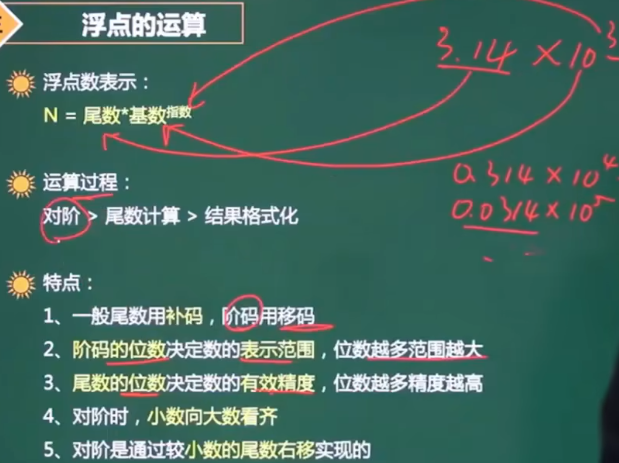 浮点的运算
3.14 × 10 3
浮点数表示：
N = 尾数*基数指数
0.314 × 10 4
0.0314 × 10 5
运算过程：
对阶 > 尾数计算 > 结果格式化
特点：
1、一般尾数用补码，阶码用移码
2、阶码的位数决定数的表示范围，位数越多范围越大
3、尾数的位数决定数的有效精度，位数越多精度越高
4、对阶时，小数向大数看齐
5、对阶是通过较小数的尾数右移实现的